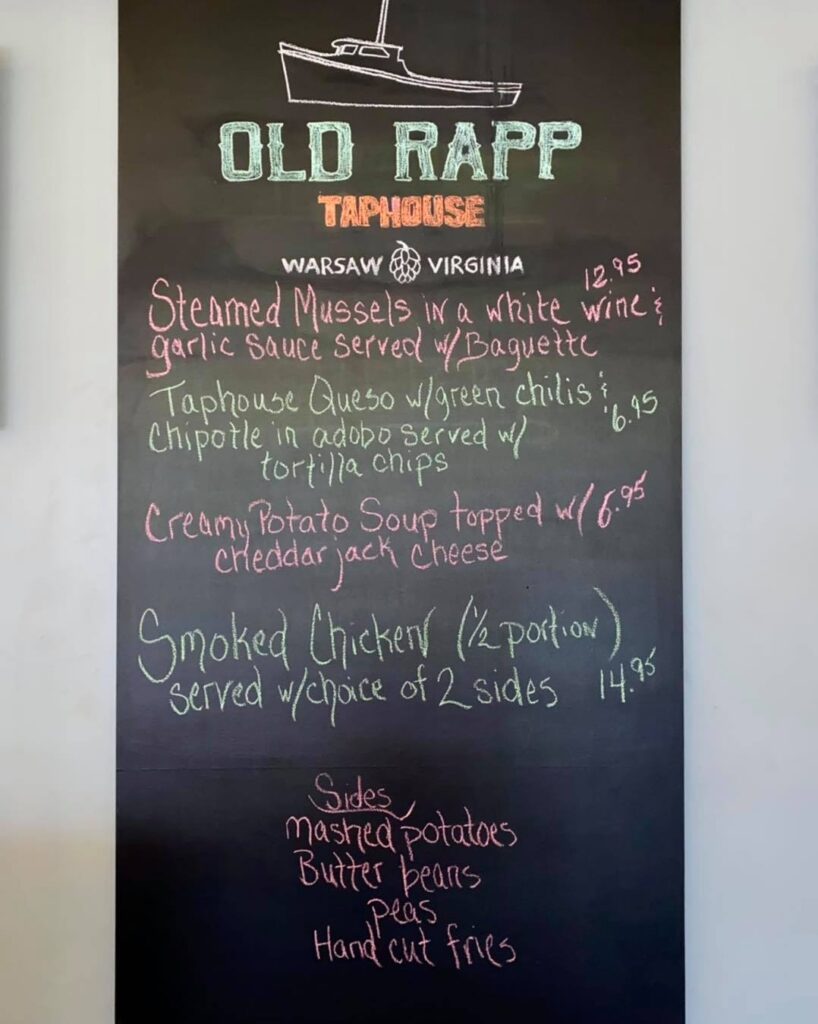 OLD RAPP
TAPHOUSE
WARSAW VIRGINIA
12.95
Steamed Mussels in a white wine &
garlic sauce served w/Baguette
Taphouse Queso w/green chilis &
6.95
Chipotle in adobo served w/
tortilla chips
Creamy Potato Soup topped w/ 6.95
cheddar jack cheese
Smoked Chicken (1/2 portion)
served w/choice of 2 sides 14.95
Sides
mashed potatoes
Butter beans
peas
Hand cut fries